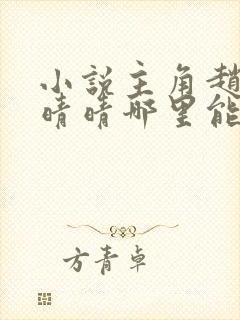 小说主角赵
晴晴哪里能
方青卓